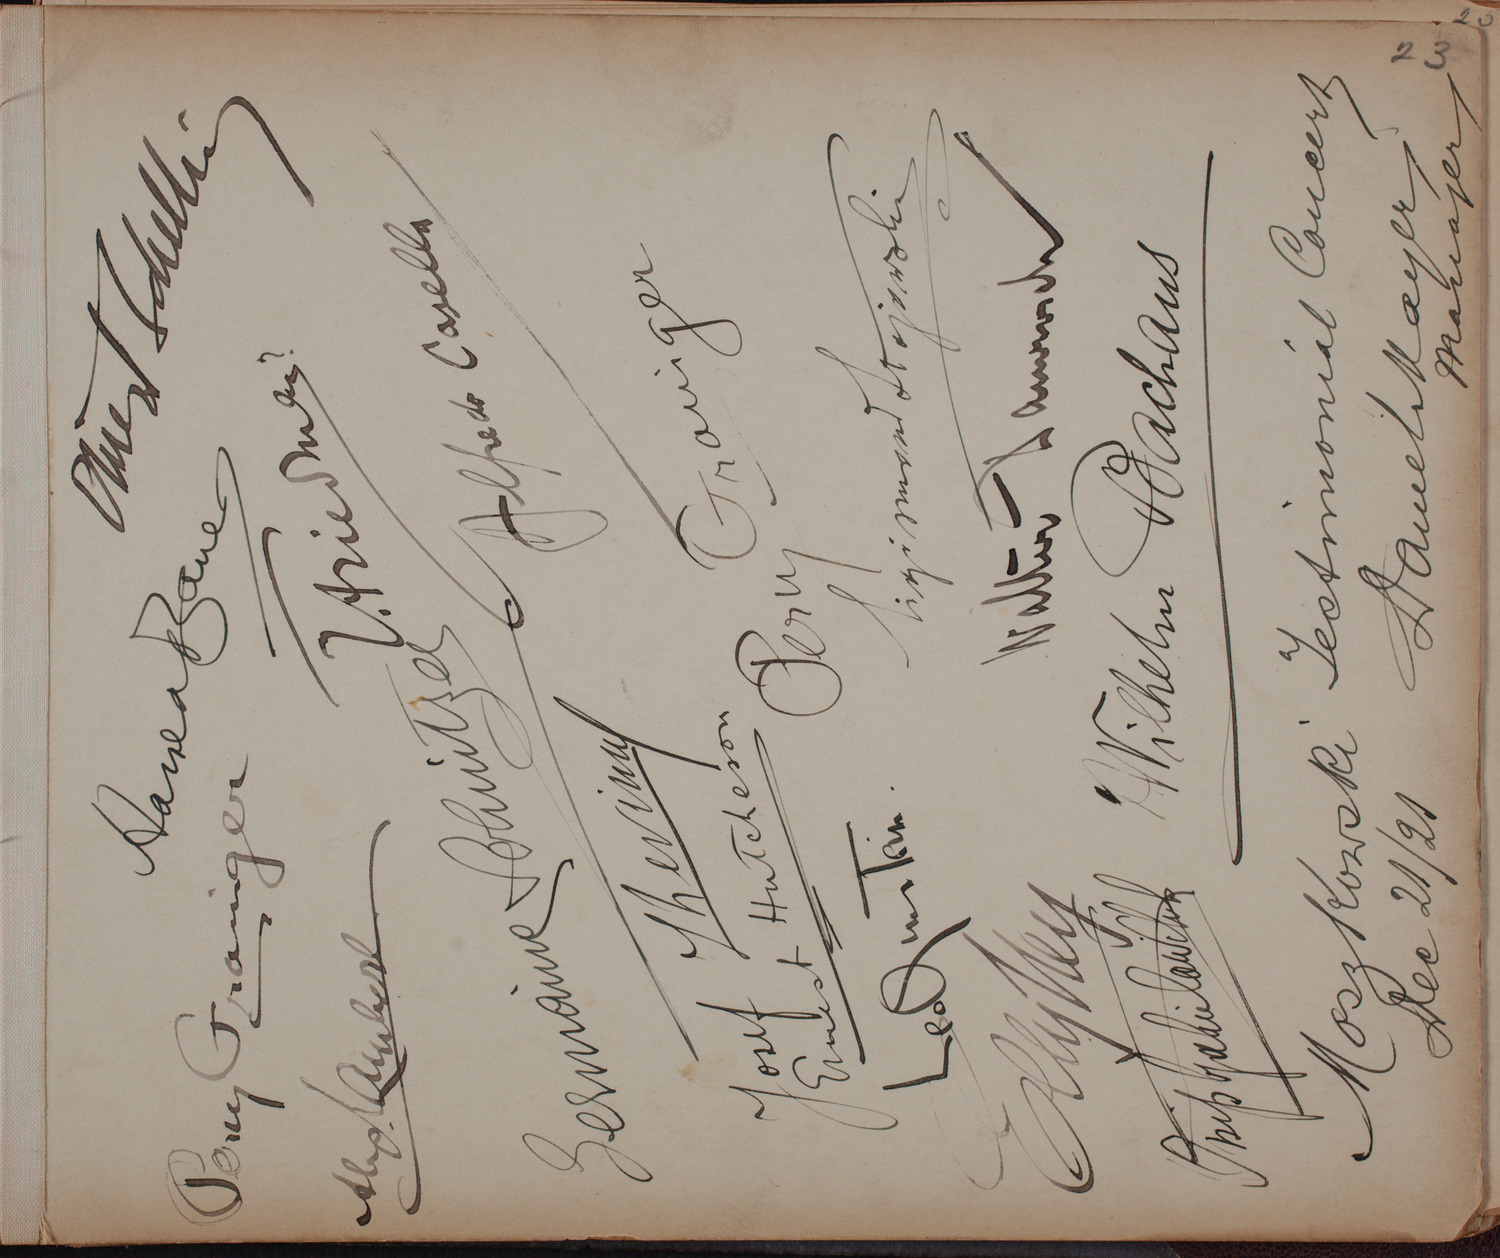 23
23
Ernest Schelling
Harold Bauer
Percy Grainger
I. Friedman?
Alfredo Casella
Alex. Lambert
Germaine Schnitzer
Josef Lhevinne
Percy Grainger
Ernest Hutcheson
Sigismond Stojowski
Leo Ornstein.
Walter Damrosch
Elly Ney
Wilhelm Bachaus
Ossip Gabrilowitsch
Moszkowski Testimonial Concert
Dec 21/21 Daniel Mayer
Manager